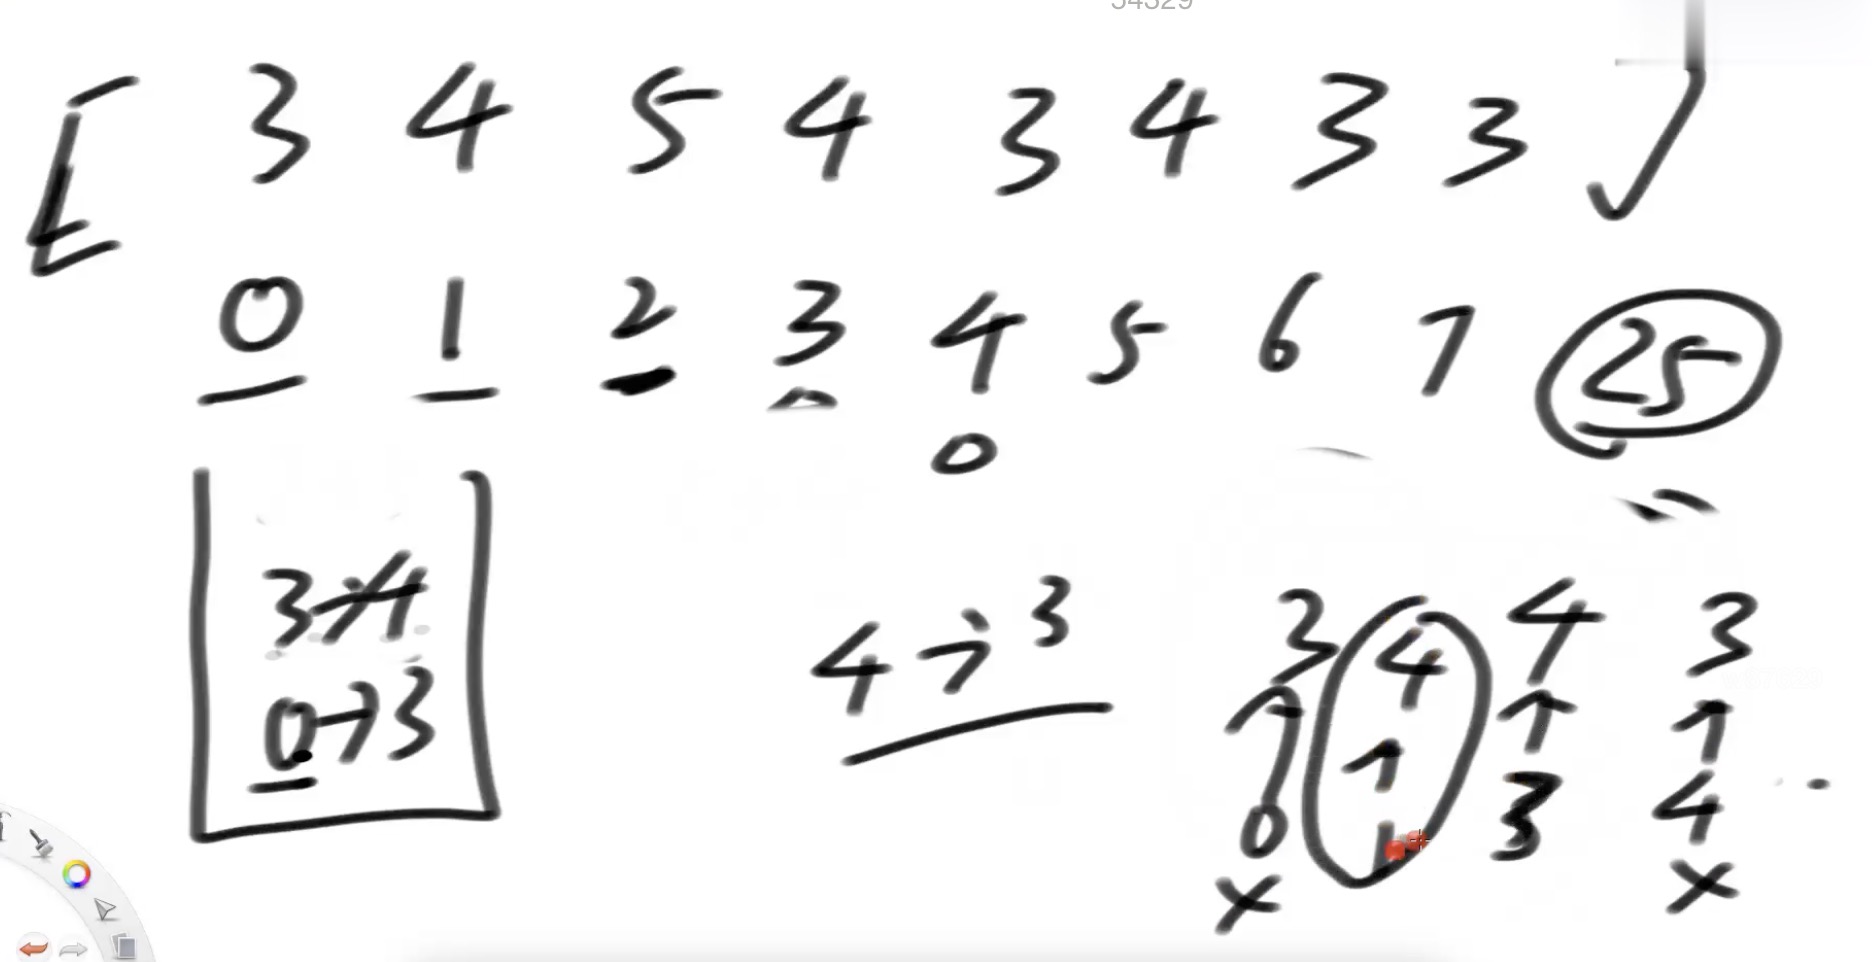 54329
[ 3 4 5 4 3 4 3 3 ]
0 1 2 3 4 5 6 7 25
0
3→4
0→3
4→3
3 4 4 3
↑ ↑ ↑ ↑
0 1 3 4
x x